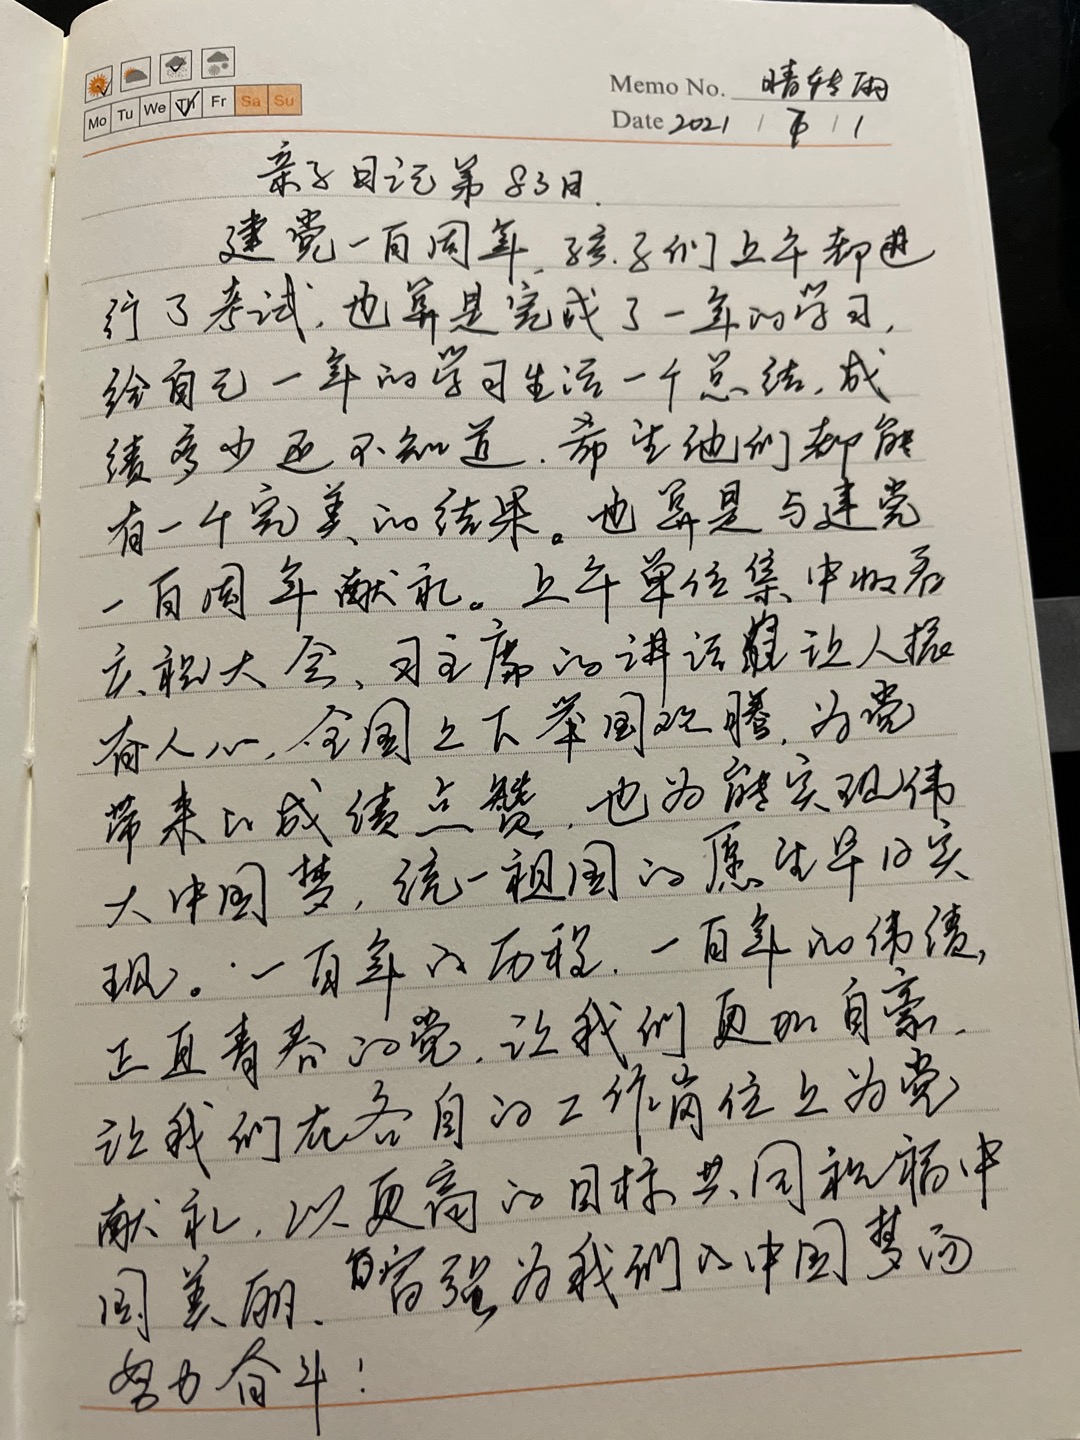 Mo Tu We Th Fr Sa Su
Memo No. 晴转雨
Date 2021 / 7 / 1
亲子日记第83日.
建党一百周年,孩子们上午都进
行了考试,也算是完成了一年的学习,
给自己一年的学习生活一个总结,成
绩多少还不知道,希望他们都能
有一个完美的结果。也算是与建党
一百周年献礼。上午单位集中收看
庆祝大会、习主席的讲话 让人振
奋人心,全国上下举国欢腾,为党
带来的成绩点赞,也为能实现伟
大中国梦,统一祖国的愿望早日实
现。一百年的历程,一百年的伟绩,
正直青春的党,让我们更加自豪,
让我们在各自的工作岗位上为党
献礼,以更高的目标共同祝福中
国美丽、富强为我们的中国梦而
努力奋斗!